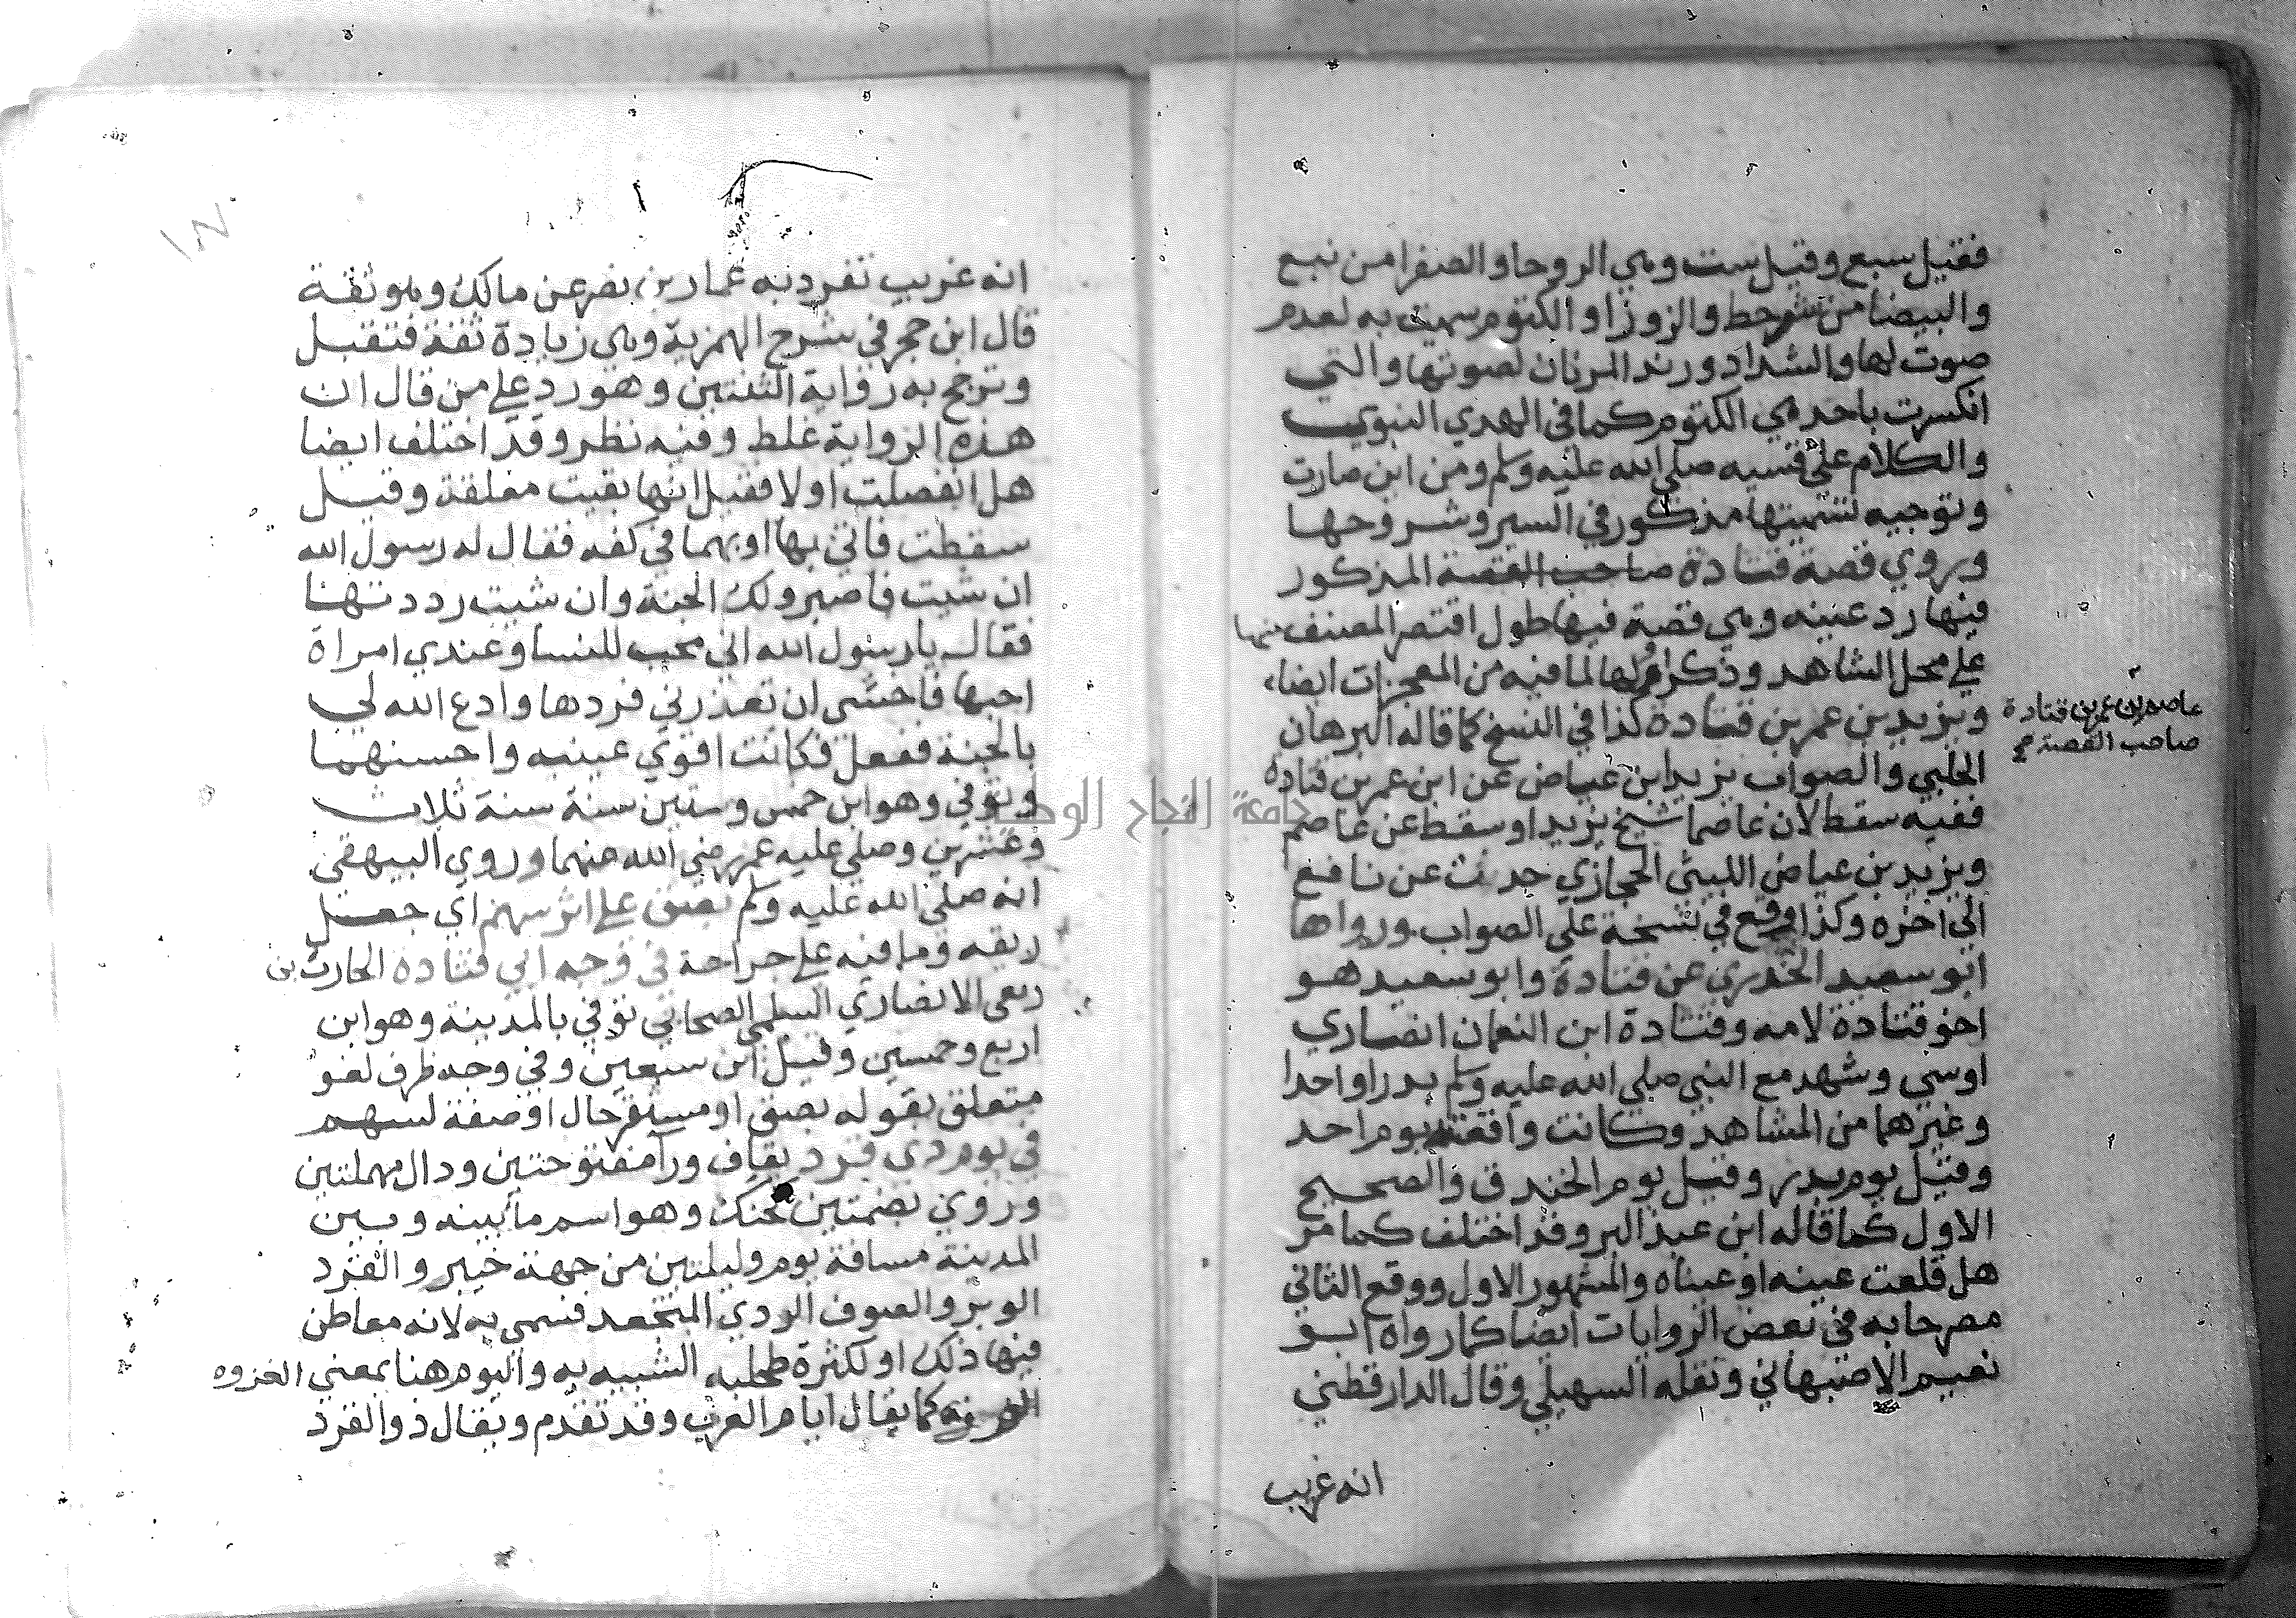 فقيل سبع وقيل ست وهي الروحا والصفرا من نبع
والبيضا من شوحط والزورا والكتوم سميت به لعدم
صوت لها والشداد ورند المرنان لصوتها والتي
انكسرت باحد هي الكتوم كما في الهدي النبوي
والكلام على قسيه صلى الله عليه وسلم ومن اين صارت
وتوجيه تسميتها مذكور في السير وشروحها
وروي قصة قتادة صاحب القصة المذكور
فيها رد عينه وهي قصة فيها طول اقتصر المصنف منها
على محل الشاهد وذكر اولها لما فيه من المعجزات ايضا
عاصم بن عمر بن قتادة
صاحب القصة صح
ويزيد بن عمر بن قتادة كذا في النسخ كما قاله البرهان
الحلبي والصواب يزيد ابن عياض عن ابن عمر بن قتادة
ففيه سقط لان عاصما شيخ يزيد او سقط عن عاصم
ويزيد بن عياض الليثي الحجازي حدث عن نافع
الى اخره وكذا وقع في نسخة على الصواب ورواها
ابو سعيد الخدري عن قتادة وابو سعيد هو
اخو قتادة لامه وقتادة ابن النعمان انصاري
اوسي وشهد مع النبي صلى الله عليه وسلم بدرا واحدا
وغيرهما من المشاهد وكانت واقعته يوم احد
وقيل يوم بدر وقيل يوم الخندق والصحيح
الاول كما قاله ابن عبد البر وقد اختلف كما مر
هل قلعت عينه او عيناه والمشهور الاول ووقع الثاني
مصرحا به في بعض الروايات ايضا كما رواه ابو
نعيم الاصبهاني ونقله السهيلي وقال الدارقطني
انه غريب
انه غريب تفرد به عمار بن نصر عن مالك وهو ثقة
قال ابن حجر في شرح الهمزية وهي زيادة ثقة فتقبل
وترجح به رواية الثنتين وهو رد على من قال ان
هذه الرواية غلط وفيه نظر وقد اختلف ايضا
هل انفصلت اولا فقيل انها بقيت معلقة وقيل
سقطت فاتى بها او بهما في كفه فقال له رسول الله
ان شيت فاصبر ولك الجنة وان شيت رددتها
فقال يا رسول الله اني محب للنسا وعندي امراة
احبها فاخشى ان تعذرني فردها وادع الله لي
بالجنة ففعل فكانت اقوى عينيه واحسنهما
وتوفي وهو ابن خمس وستين سنة سنة ثلاث
وعشرين وصلى عليه عمر رضي الله عنهما وروي البيهقي
انه صلى الله عليه وسلم بصق على اثر سهم اي جعل
ريقه وما فيه على جراحة في وجه ابي قتادة الحارث بن
ربعي الانصاري السلمي الصحابي توفي بالمدينة وهو ابن
اربع وخمسين وقيل ابن سبعين وفي وجه ظرف لغو
متعلق بقوله بصق او مستقر حال او صفة لسهم
في يوم ذي قرد بقاف ورآ مفتوحتين ودال مهملتين
وروي بضمتين كحنك وهو اسم ما بينه وبين
المدينة مسافة يوم وليلتين من جهة خيبر والقرد
الوبر والصوف الردي المتجعد فسمي به لانه معاطن
فيها ذلك او لكثرة طحلبه الشبيه به واليوم هنا بمعنى الغزوه
كما يقال ايام العرب وقد تقدم ويقال ذوالقرد
جامعة النجاح الوطنية